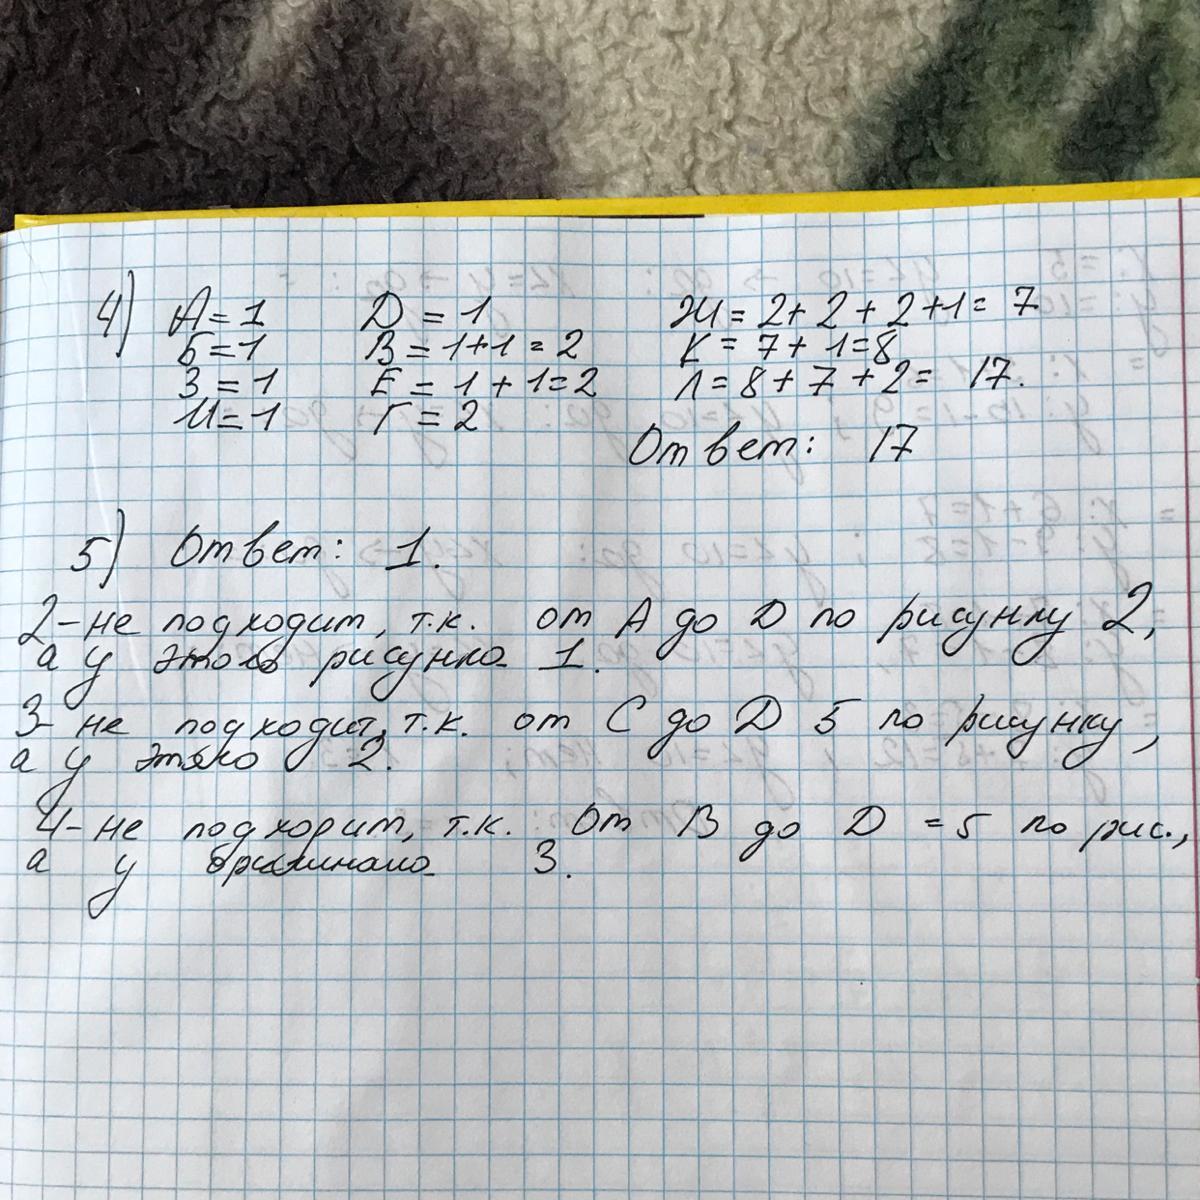 4) А=1 D=1 Ж=2+2+2+1=7
Б=1 В=1+1=2 К=7+1=8
З=1 Е=1+1=2 Л=8+7+2=17.
И=1 Г=2
Ответ: 17
5) Ответ: 1.
2-не подходит, т.к. от А до D по рисунку 2,
а у этого рисунка 1.
3-не подходит, т.к. от С до D 5 по рисунку,
а у 2.
4-не подходит, т.к. от В до D=5 по рис.,
а у 3.